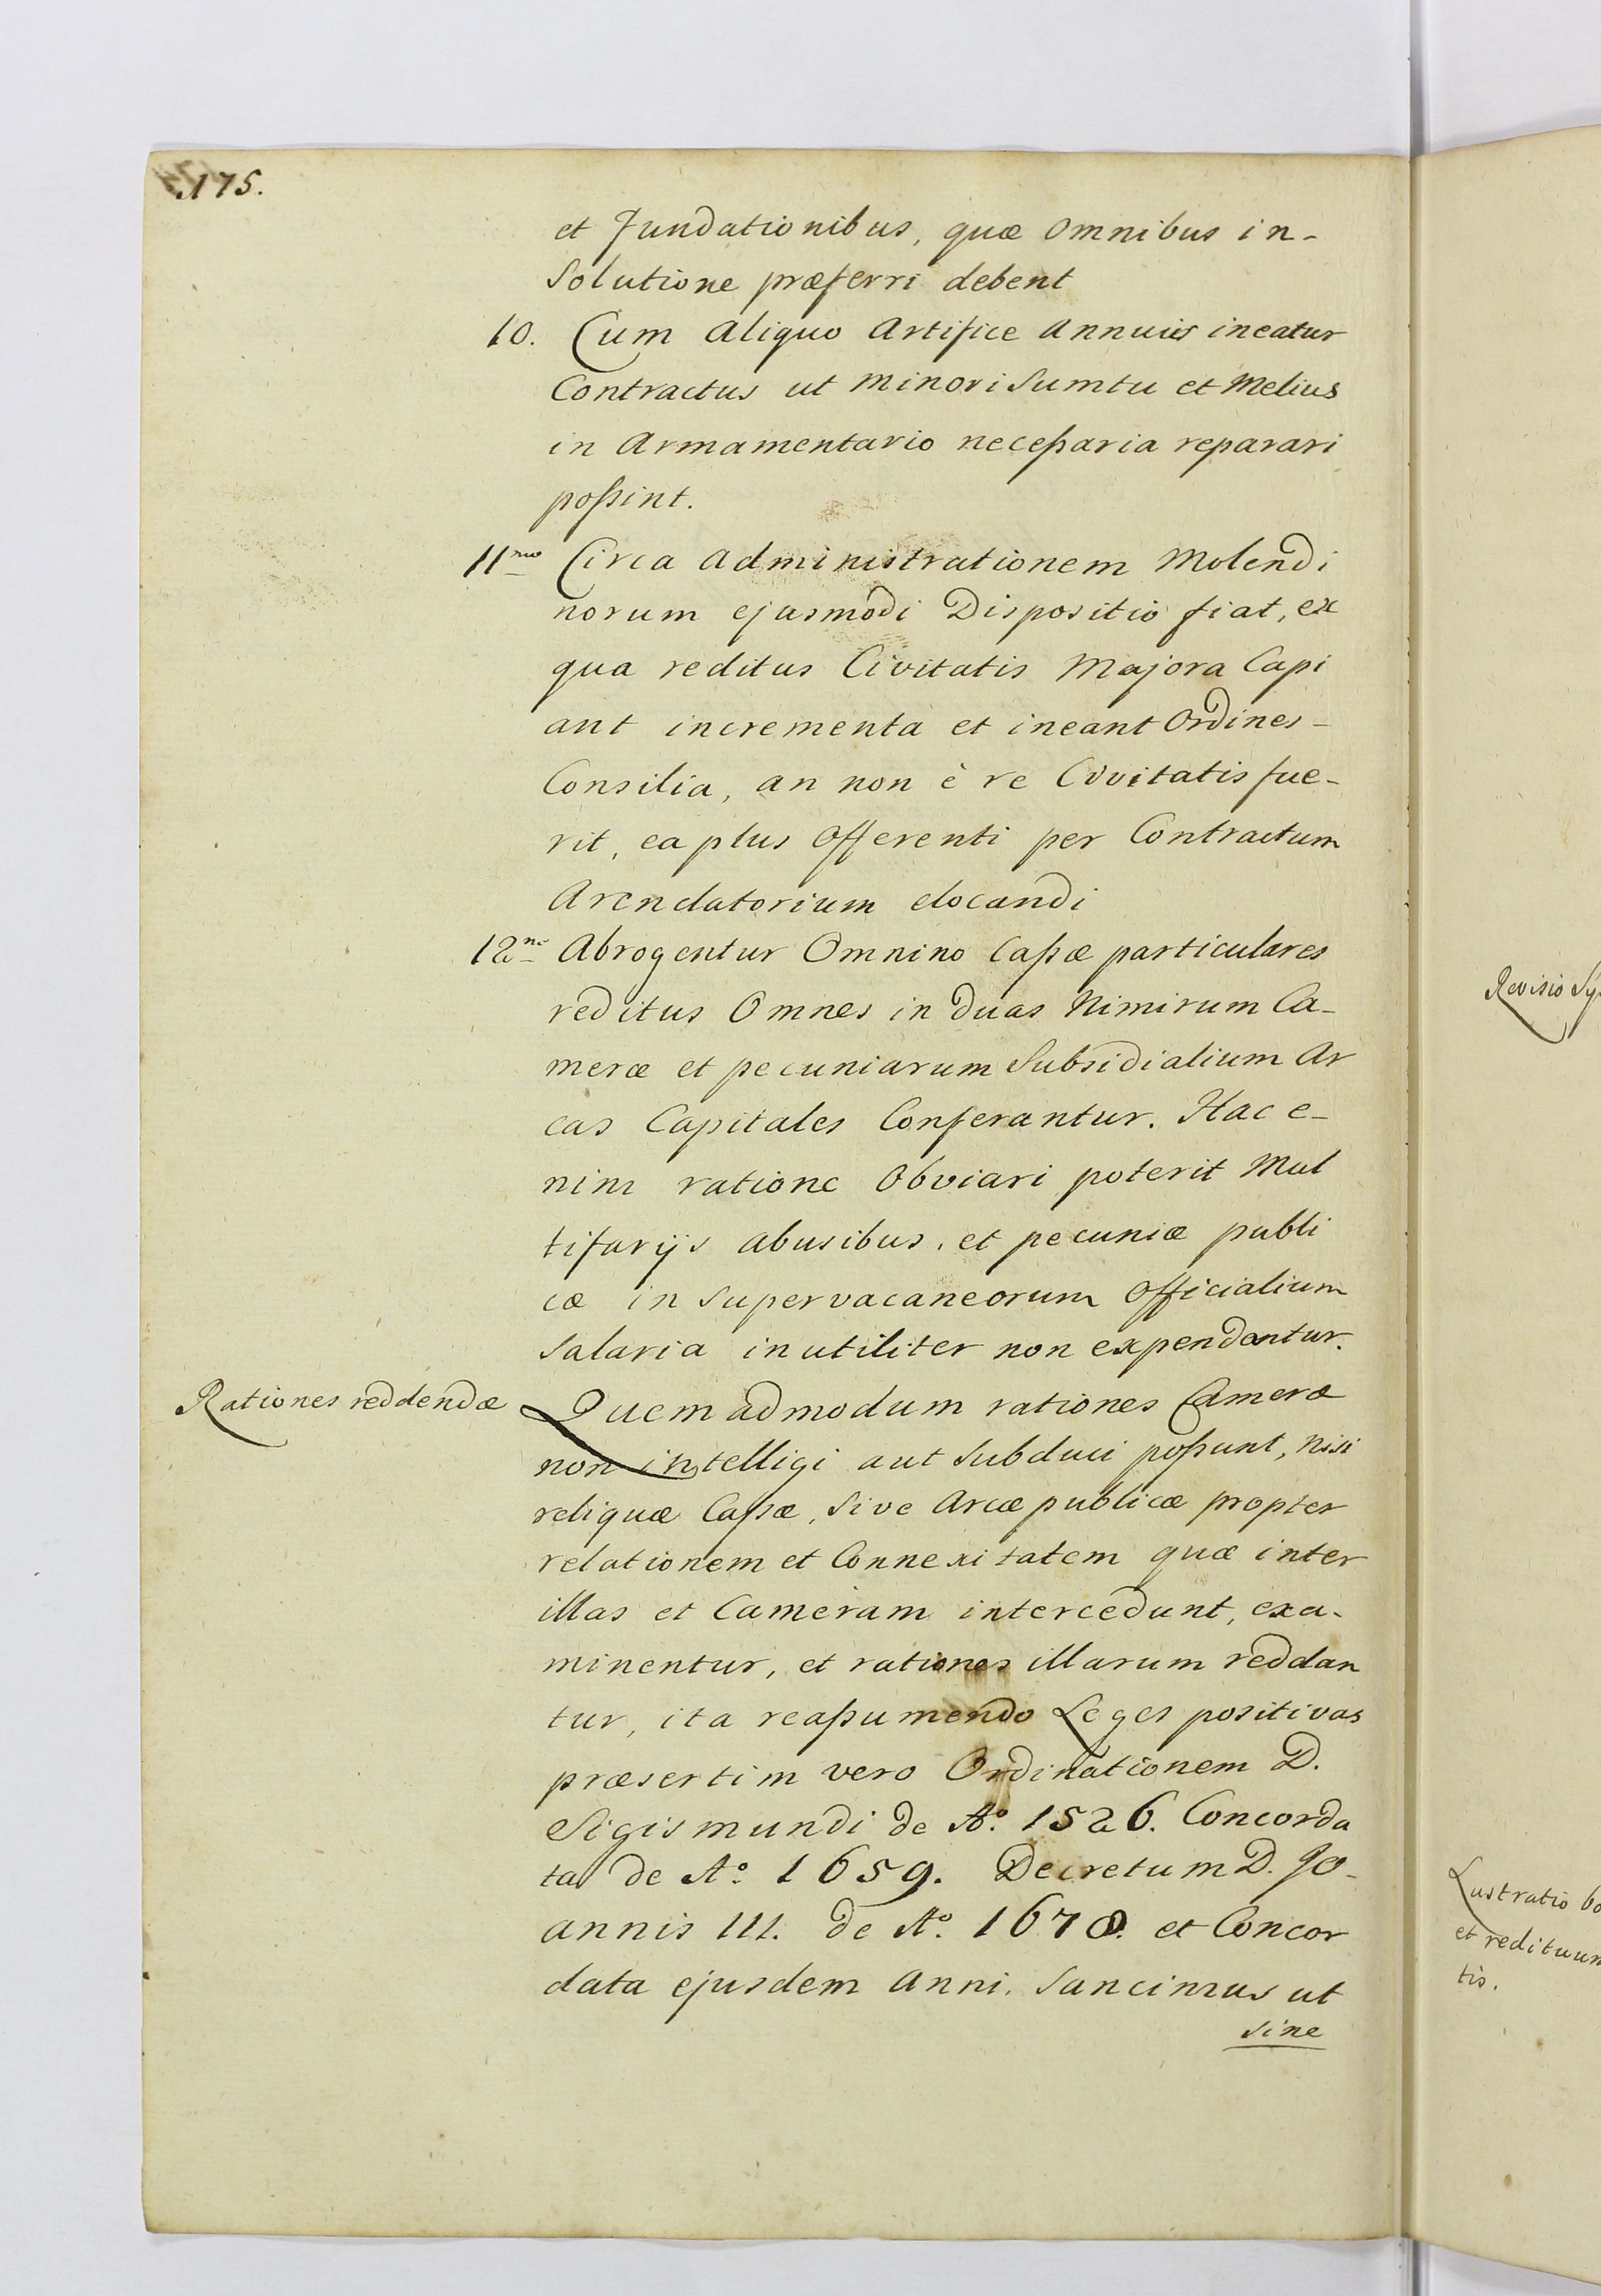 175.
et fundationibus, quæ Omnibus in-
Solutione præferri debent
10. Cum aliquo Artifice Annuus ineatur
Contractus ut minori Sumtu et Melius
in Armamentario neceßaria reparari
poßint.
11mo Circa administrationem Molendi
norum ejusmodi Dispositio fiat, ex
qua reditus Civitatis Majora Capi
ant incrementa et ineant Ordines-
Consilia, an non è re Civitatis fue-
rit, ea plus Offerenti per Contractum
Arendatorium elocandi
12mo Abrogentur Omnino Caßæ particulares
reditus Omnes in duas Nimirum Ca-
meræ et pecuniarum Subsidialium Ar
cas Capitales Conferantur. Hac e-
nim ratione Obviari poterit Mul
tifarijs abusibus, et pecuniæ publi
cæ in Supervacaneorum Officialium
Salaria inutiliter non expendantur.
Rationes reddendæ
Quemadmodum rationes Cameræ
non intelligi aut Subduci poßunt, nisi
reliquæ Caßæ, Sive Arcæ publicæ propter
relationem et Connexitatem quæ inter
illas et Cameram intercedunt, exa-
minentur, et rationes illarum reddan
tur, ita reaßumendo Leges positivas
præsertim vero Ordinationem D.
Sigismundi de Ao. 1526. Concorda
ta de Ao. 1659. Decretum D. Jo-
annis III. de Ao. 1678. et Concor
data ejusdem Anni. Sancimus ut
sine
Revisio
Lustratio bo
et redituum
tis.